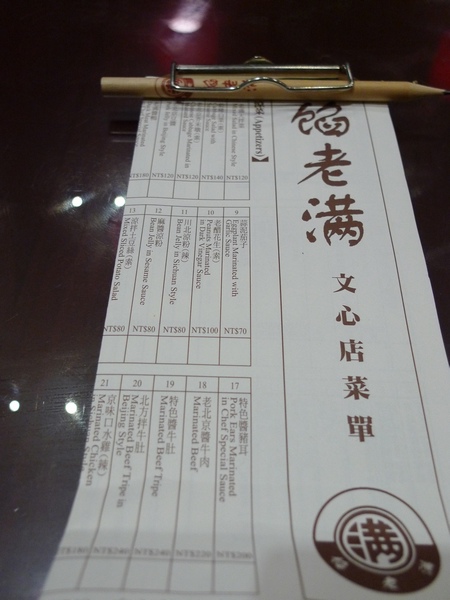 餡老满
文心店菜單
(Appetizers)】
NT$120
NT$140
NT$120
NT$120
NT$180
9
蒜泥茄子
Eggplant Marinated with
Garlic Sauce
NT$70
10
老醋花生(素)
Peanuts Marinated
in Dark Vinegar Sauce
NT$100
11
川北涼粉(辣)
Bean Jelly in Sichuan Style
NT$80
12
麻醬涼粉
Bean Jelly in Sesame Sauce
NT$80
13
涼拌土豆絲(素)
Mixed Sliced Potato Salad
NT$80
17
特色醬豬耳
Pork Ears Marinated
in Chef Special Sauce
NT$200
18
老北京醬牛肉
Marinated Beef
NT$220
19
特色醬牛肚
Marinated Beef Tripe
NT$240
20
北方拌牛肚
Marinated Beef Tripe in
Beijing Style
NT$240
21
京味口水雞(辣)
Marinated Chicken
NT$180
满